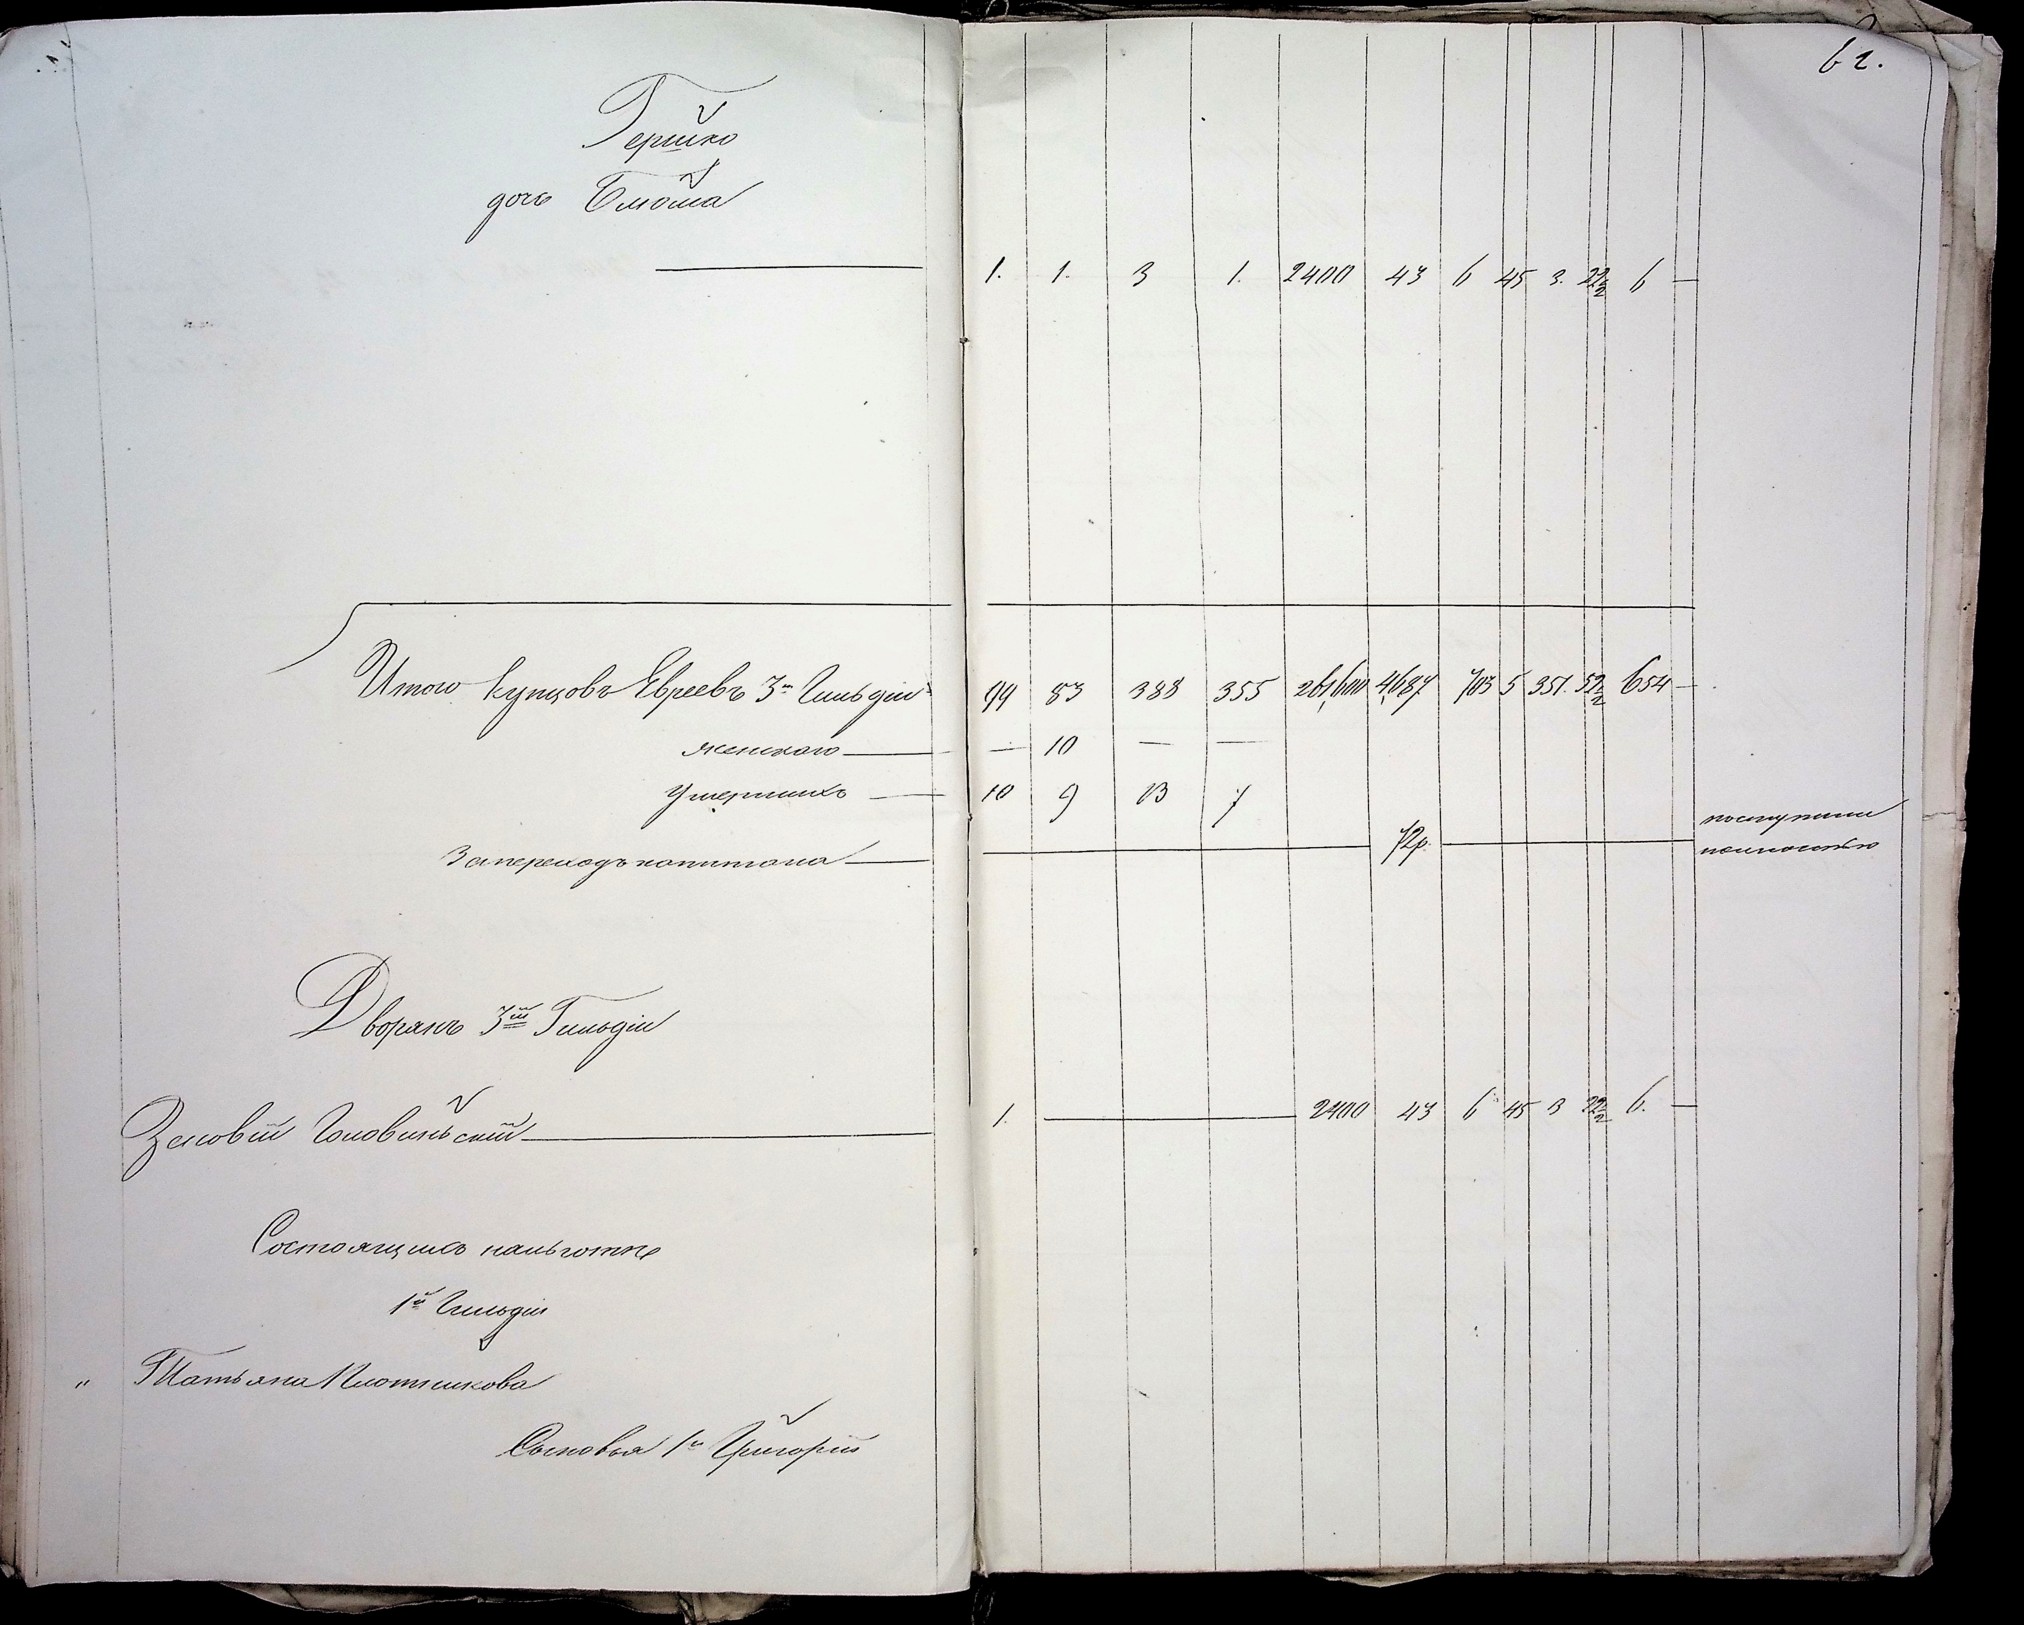 62.
Гершко
дочь Блюма
1. 1. 3 1. 2400 43 6 45 3. 22½ 6 —
Итого купцовъ Евреевъ 3й Гильдіи 99 83 388 355 261,600 4,687 703 5 351. 52½ 654 —
женскаго — — 10 — —
Умершихъ — 10 9 13 7
За переходъ капитала — 72р. — поступили
полностью
Дворянъ 3ей Гильдіи
Зеновій Головинскій — 1. — 2400 43 6 45 3 22½ 6. —
Состоящихъ на льготѣ
1й Гильдіи
" Татьяна Плотникова
Сыновья 1й Григорій